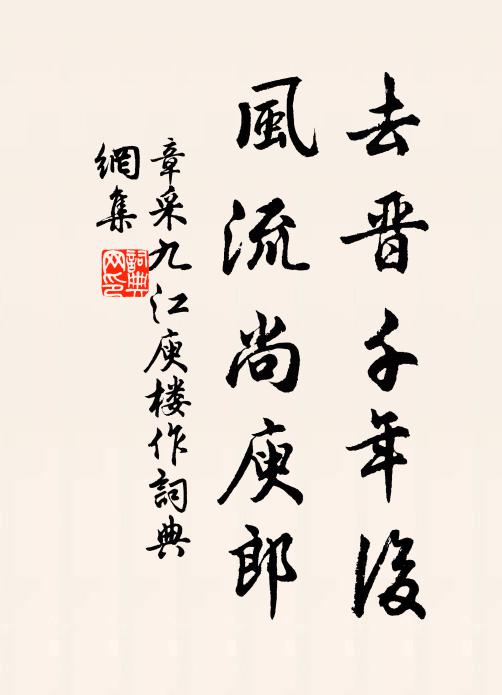 去晋千年後
風流尚庾郎
章采九江庾楼作詞典
網集
詞典网印